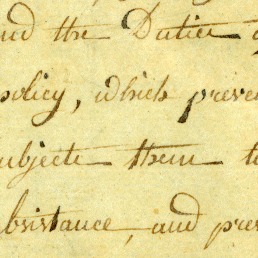 and the Duties of
policy, which preve
ubjects them to
bsistance, and pre